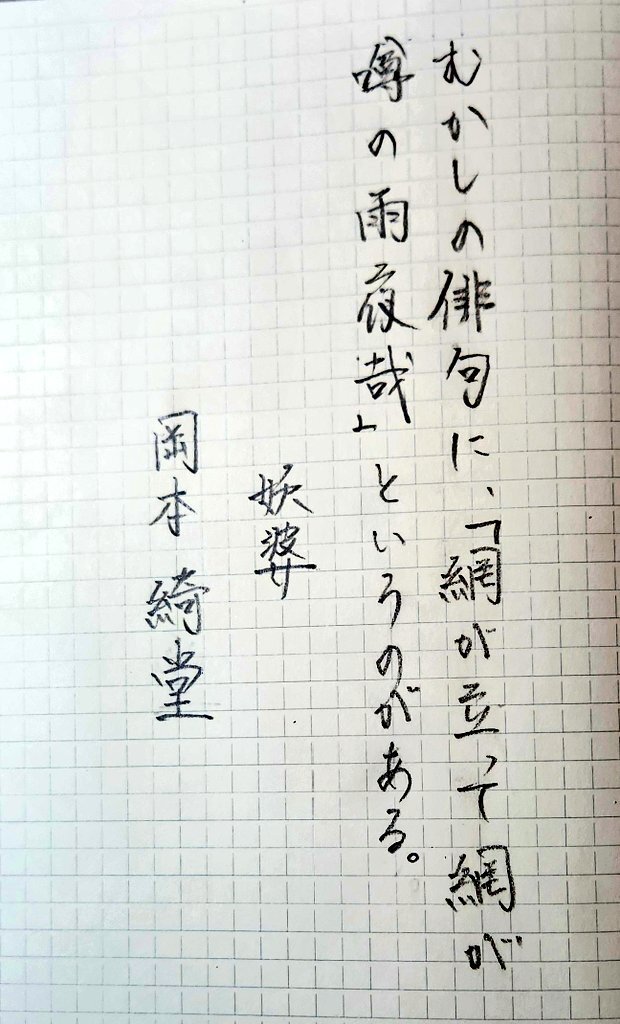 むかしの俳句に、「網が立って網が
噂の雨夜哉」というのがある。
妖婆
岡本綺堂